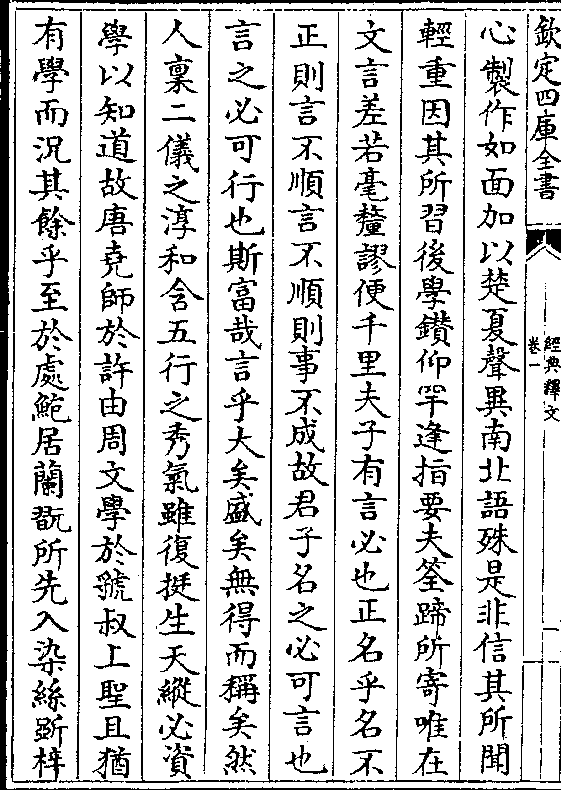 欽定四庫全書
經典釋文
卷一
一
心製作如面加以楚夏聲異南北語殊是非信其所聞
輕重因其所習後學鑽仰罕逢指要夫筌蹄所寄唯在
文言差若毫釐謬便千里夫子有言必也正名乎名不
正則言不順言不順則事不成故君子名之必可言也
言之必可行也斯富哉言乎大矣盛矣無得而稱矣然
人稟二儀之淳和含五行之秀氣雖復挺生天縱必資
學以知道故唐堯師於許由周文學於虢叔上聖且猶
有學而況其餘乎至於處鮑居蘭翫所先入染絲斲梓